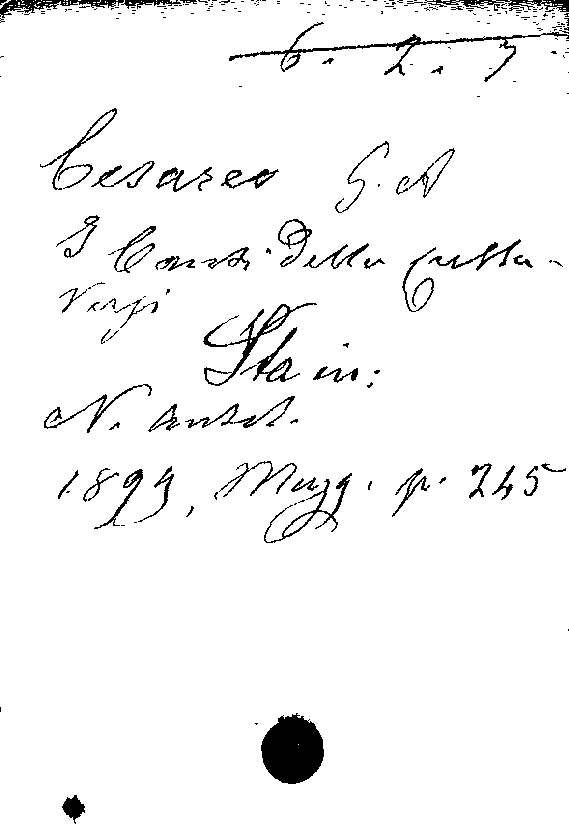 6. 2. 7
Cesareo G. A
I Canti della culla-
Versi
Sta in:
N. Antol.
1893, Magg. p. 245